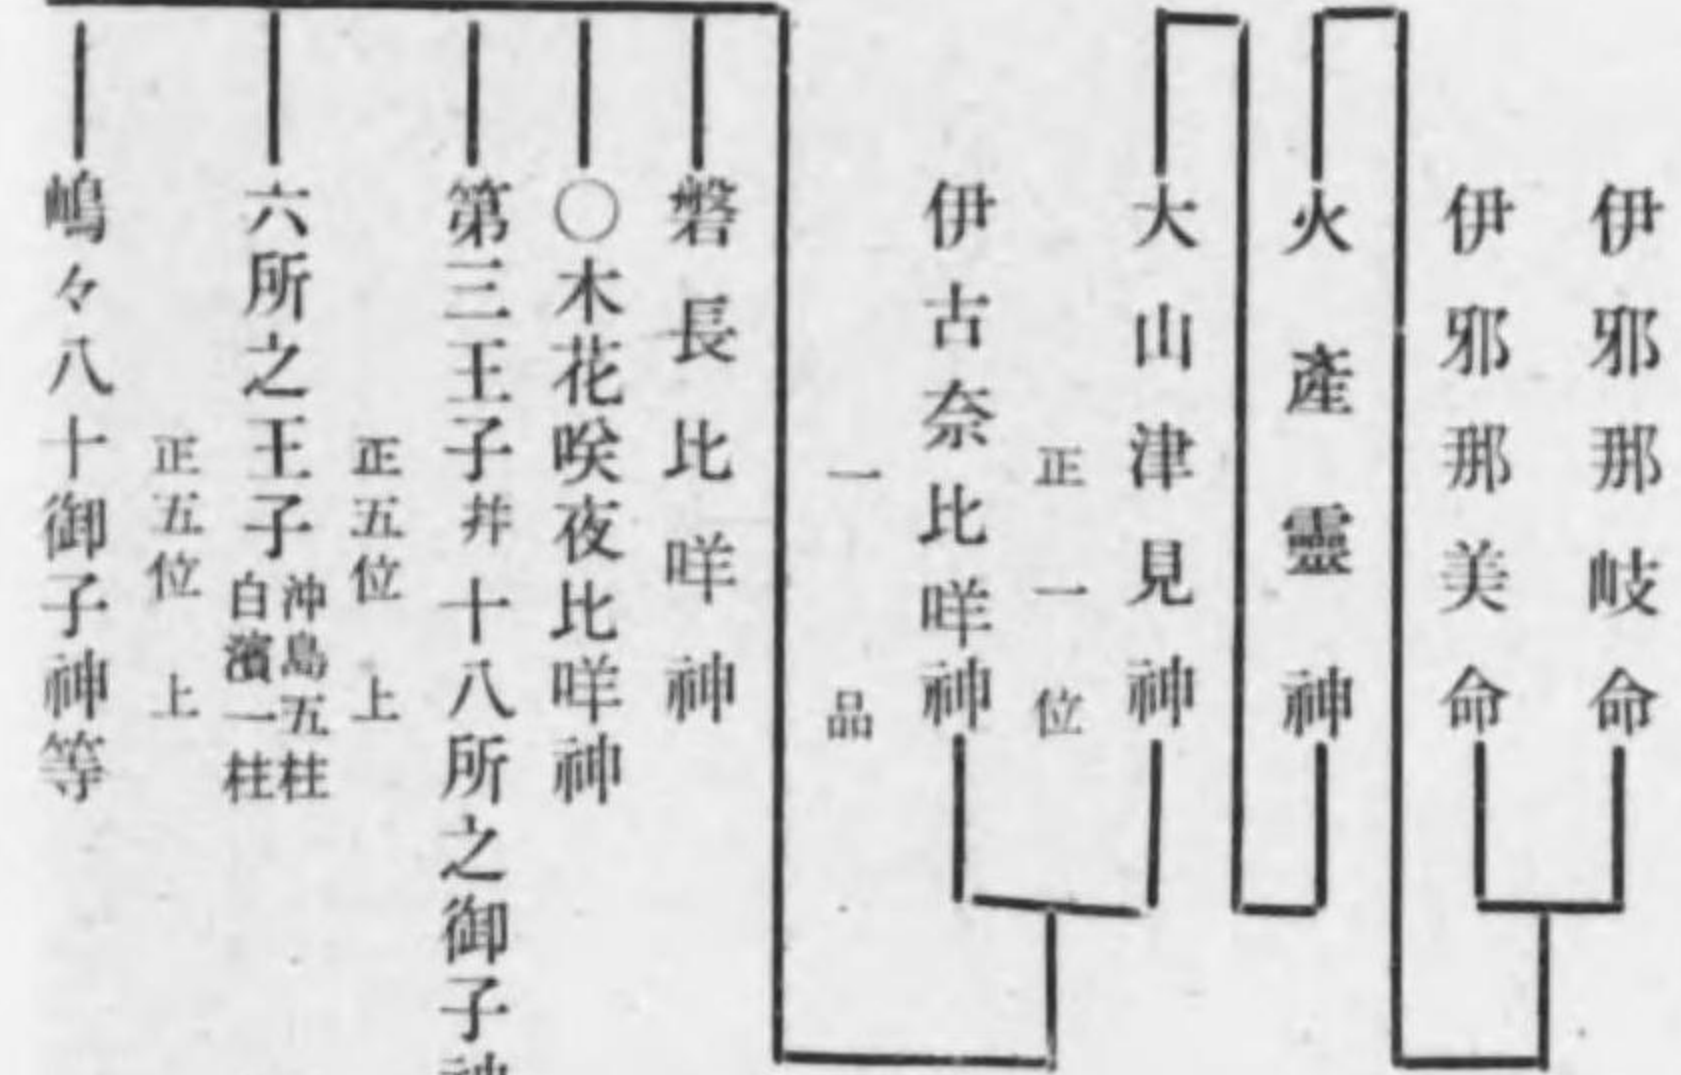 伊邪那岐命
伊邪那美命
火產靈神
大山津見神
正一位
伊古奈比咩神
一品
磐長比咩神
〇木花咲夜比咩神
第三王子幷十八所之御子神
正五位上
六所之王子
沖島五柱
白濱一柱
正五位上
嶋々八十御子神等